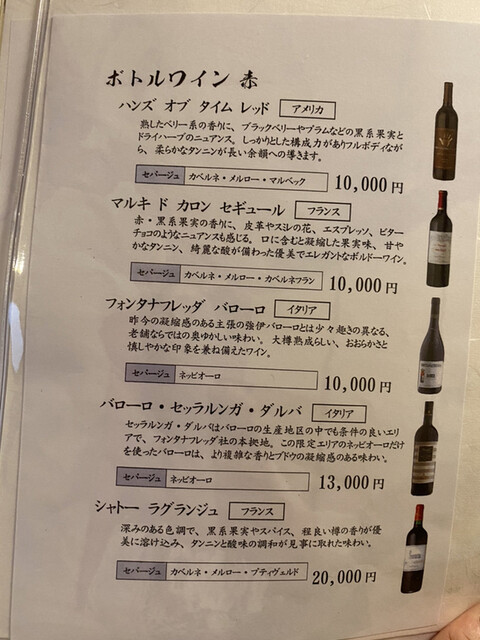 ボトルワイン 赤
ハンズ オブ タイム レッド アメリカ
熟したベリー系の香りに、ブラックベリーやプラムなどの黒系果実と
ドライハーブのニュアンス。しっかりとした構成力がありフルボディなが
ら、柔らかなタンニンが長い余韻への導きます。
セパージュ カベルネ・メルロー・マルベック 10,000円
マルキ ド カロン セギュール フランス
赤・黒系果実の香りに、皮革やスミレの花、エスプレッソ、ビター
チョコのようなニュアンスも感じる。口に含むと凝縮した果実味、甘や
かなタンニン、綺麗な酸が備わった優美でエレガントなボルドーワイン。
セパージュ カベルネ・メルロー・カベルネフラン 10,000円
フォンタナフレッダ バローロ イタリア
昨今の凝縮感のある主張の強伊バローロとは少々趣きの異なる、
老舗ならではの奥ゆかしい味わい。大樽熟成らしい、おおらかさと
慎しやかな印象を兼ね備えたワイン。
セパージュ ネッビオーロ 10,000円
バローロ・セッラルンガ・ダルバ イタリア
セッラルンガ・ダルバはバローロの生産地区の中でも条件の良いエリ
アで、フォンタナフレッダ社の本拠地。この限定エリアのネッビオーロだけ
を使ったバローロは、より複雑な香りとブドウの凝縮感のある味わい。
セパージュ ネッビオーロ 13,000円
シャトー ラグランジュ フランス
深みのある色調で、黒系果実やスパイス、程良い樽の香りが優
美に溶け込み、タンニンと酸味の調和が見事に取れた味わい。
セパージュ カベルネ・メルロー・プティヴェルド 20,000円